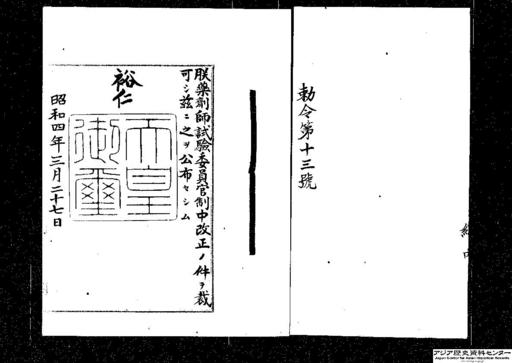 勅令第十三號
朕藥劑師試驗委員官制中改正ノ件ヲ裁
可シ茲ニ之ヲ公布セシム
裕仁
天皇
御璽
昭和四年三月二十七日
アジア歴史資料センター
Japan Center for Asian Historical Records